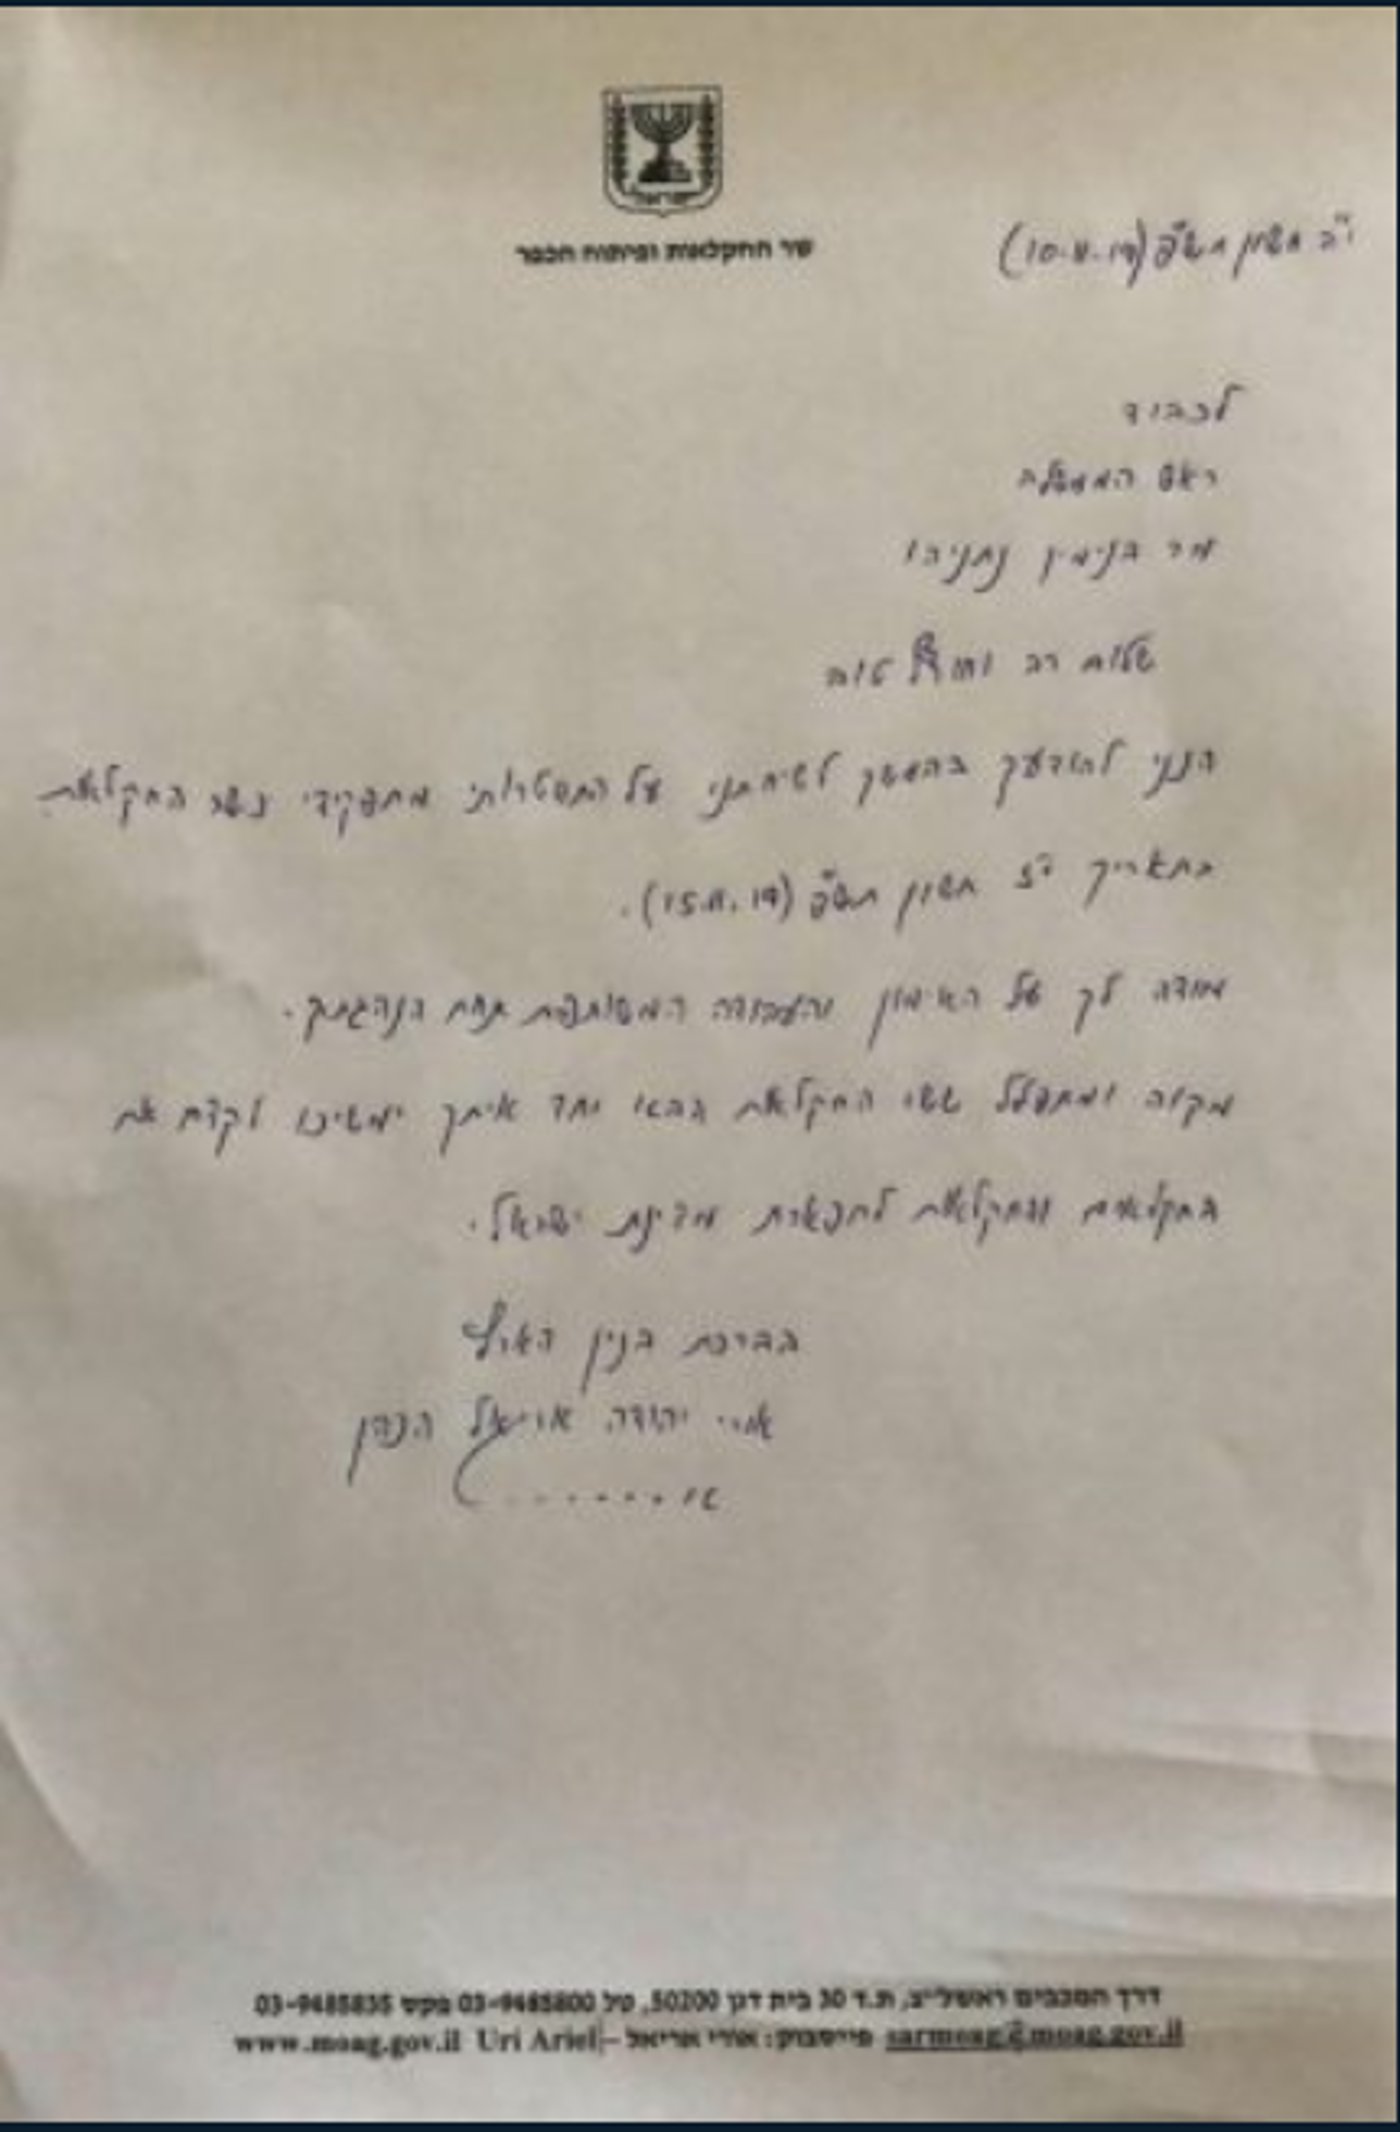 שר החקלאות ופיתוח הכפר
י"ב חשון תש"פ (10.11.19)
לכבוד
ראש הממשלה
מר בנימין נתניהו
שלום רב טוב
הנני להודעך בהמשך לשיחתנו על התפטרותי מתפקידי כשר החקלאות
בתאריך י"ז חשון תש"פ (15.11.19).
מודה לך על האימון והעבודה המשותפת תחת הנהגתך.
מקוה ומתפלל ששר החקלאות הבא יחד איתך ימשיכו לקדם את
החקלאים והחקלאות לתפארת מדינת ישראל.
בברכת בנין הארץ
אורי יהודה אריאל הכהן
דרך המכבים ראשל"צ, ת.ד 30 בית דגן 50200, טל 03-9485800 פקס 03-9485835
sarmoag@moag.gov.il פייסבוק: אורי אריאל – Uri Ariel www.moag.gov.il